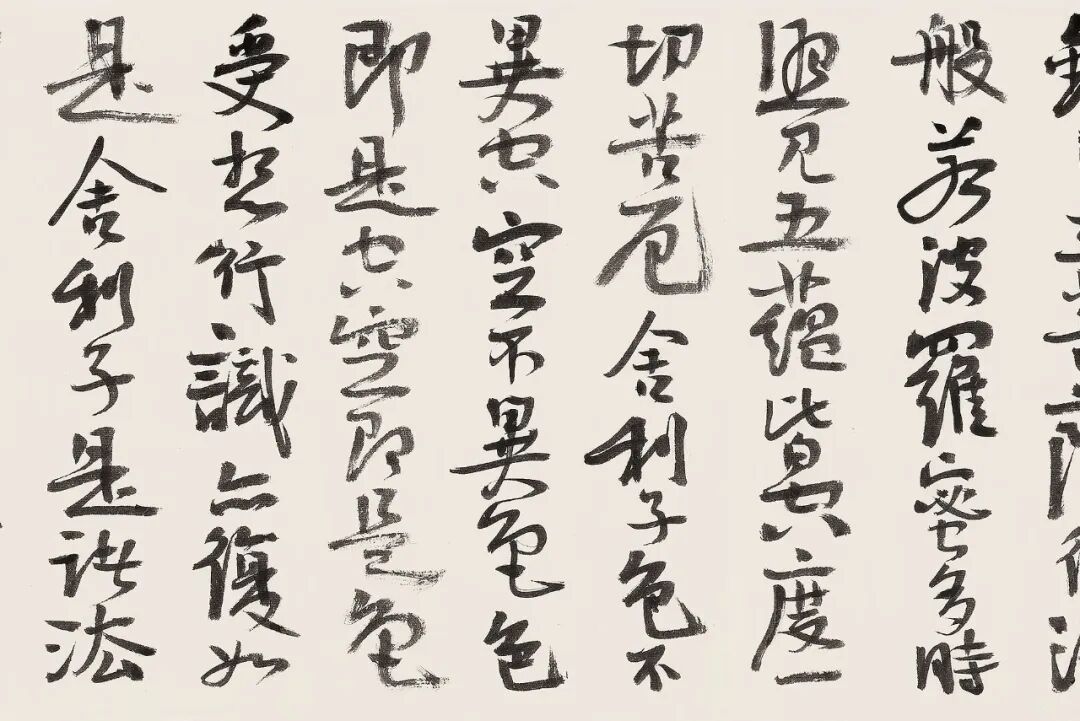 般若波羅蜜多時
照見五蘊皆空度一
切苦厄舍利子色不
異空空不異色色
即是空空即是色
受想行識亦復如
是舍利子是諸法